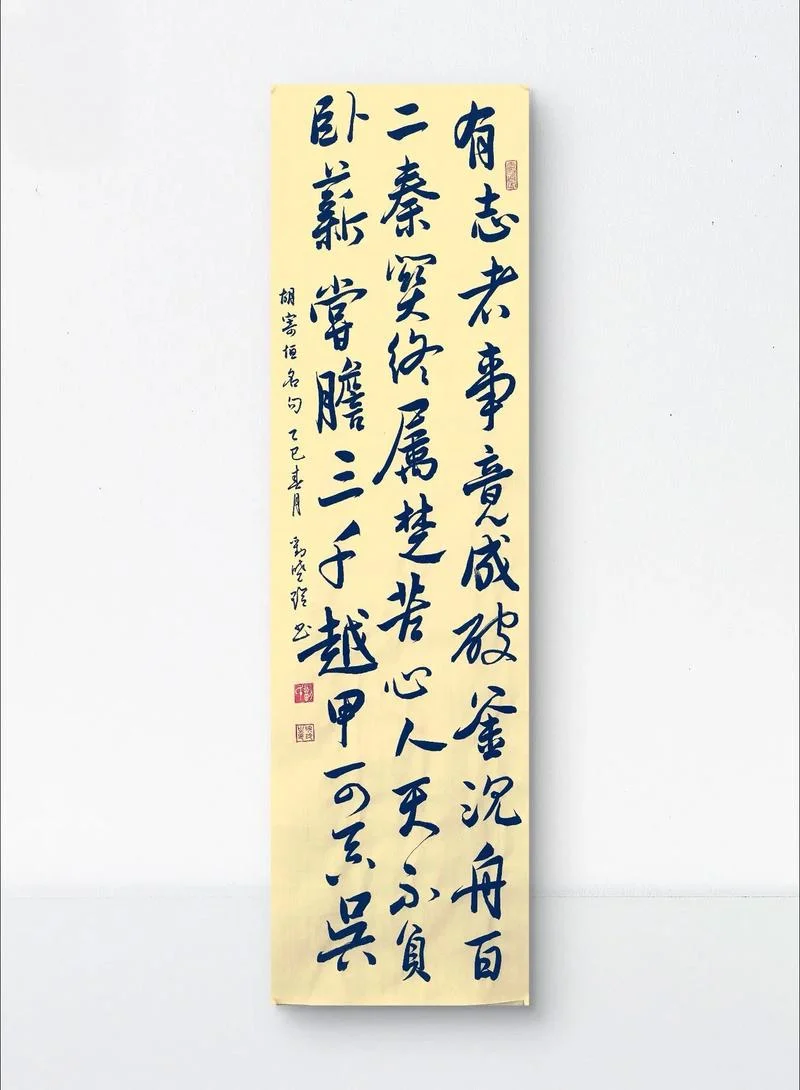 有志者事竟成破釜沉舟百
二秦關终属楚苦心人天不負
卧薪嘗膽三千越甲可吞吴
胡寄垣名句 乙巳春月 劉曉书